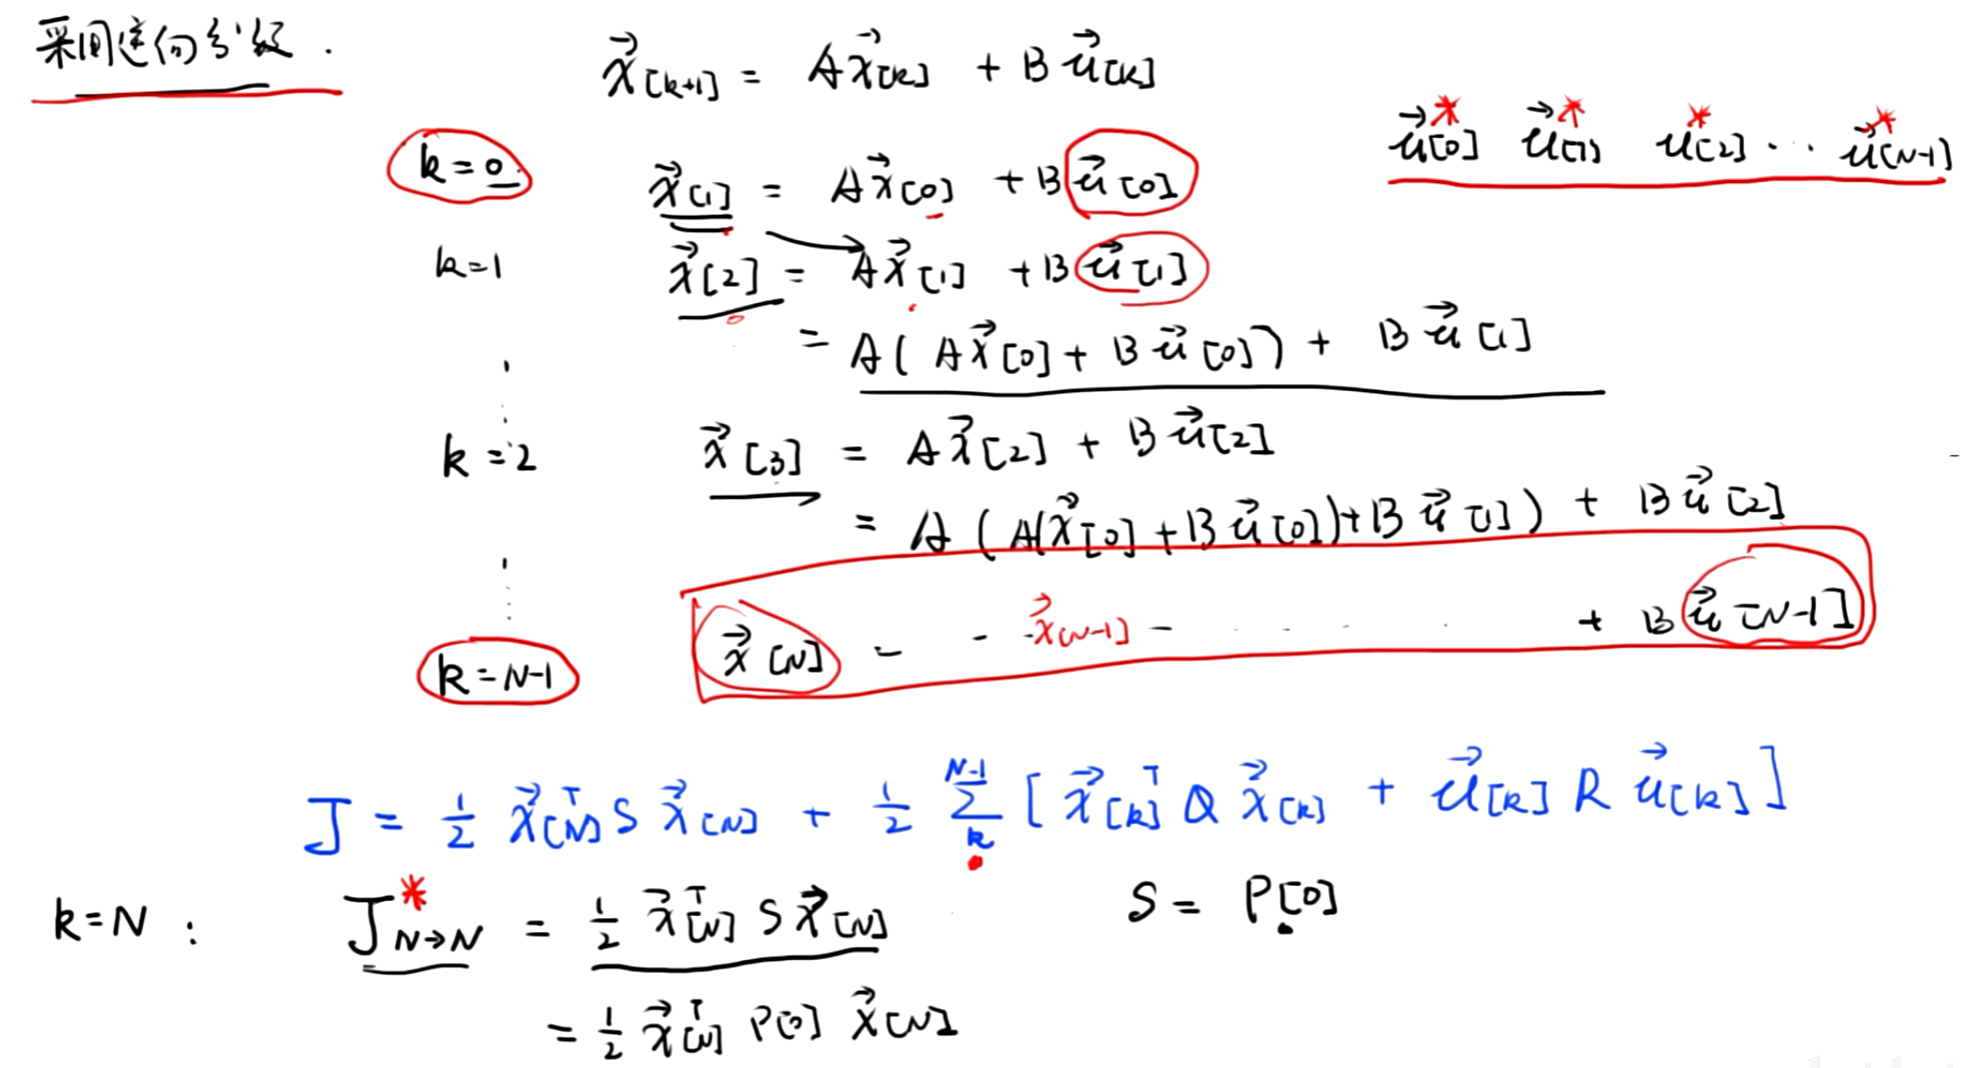 采用逆向分级.
x⃗[k+1] = Ax⃗[k] + Bu⃗[k]
u⃗*[0] u⃗*[1] u*[2] ... u⃗*[N-1]
k=0 x⃗[1] = Ax⃗[0] + Bu⃗[0]
k=1 x⃗[2] = Ax⃗[1] + Bu⃗[1]
= A(Ax⃗[0] + Bu⃗[0]) + Bu⃗[1]
k=2 x⃗[3] = Ax⃗[2] + Bu⃗[2]
= A(A(x⃗[0] + Bu⃗[0]) + Bu⃗[1]) + Bu⃗[2]
k=N-1 x⃗[N] = - - x⃗[N-1] - ... + Bu⃗[N-1]
J = 1/2 x⃗[N]ᵀ S x⃗[N] + 1/2 Σ_k^{N-1} [x⃗[k]ᵀ Q x⃗[k] + u⃗[k] R u⃗[k]]
k=N : J*_{N→N} = 1/2 x⃗[N]ᵀ S x⃗[N] S = P[0]
= 1/2 x⃗[N]ᵀ P[0] x⃗[N]